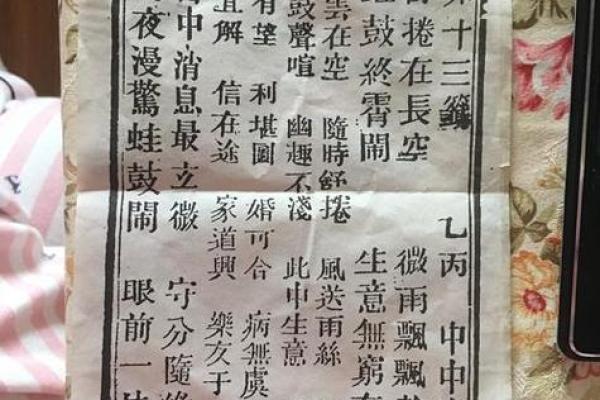 十三籤 乙丙 中中
捲在長空 微雨飄飄
鼓終霄鬧 生意無窮
雲在空 隨時舒捲 風送雨絲
鼓聲喧 幽趣不淺 此中生意
有望 利堪圖 婚可合 病無虞
宜解 信在途 家道興 樂友于
中消息最立微 守分隨
夜漫驚蛙鼓鬧 眼前一